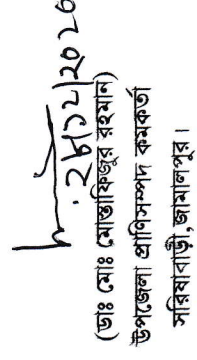 ২৮/১২/২০২০
(ডাঃ মোঃ মোস্তাফিজুর রহমান)
উপজেলা প্রাণিসম্পদ কমকর্তা
সরিষাবাড়ী,জামালপুর।